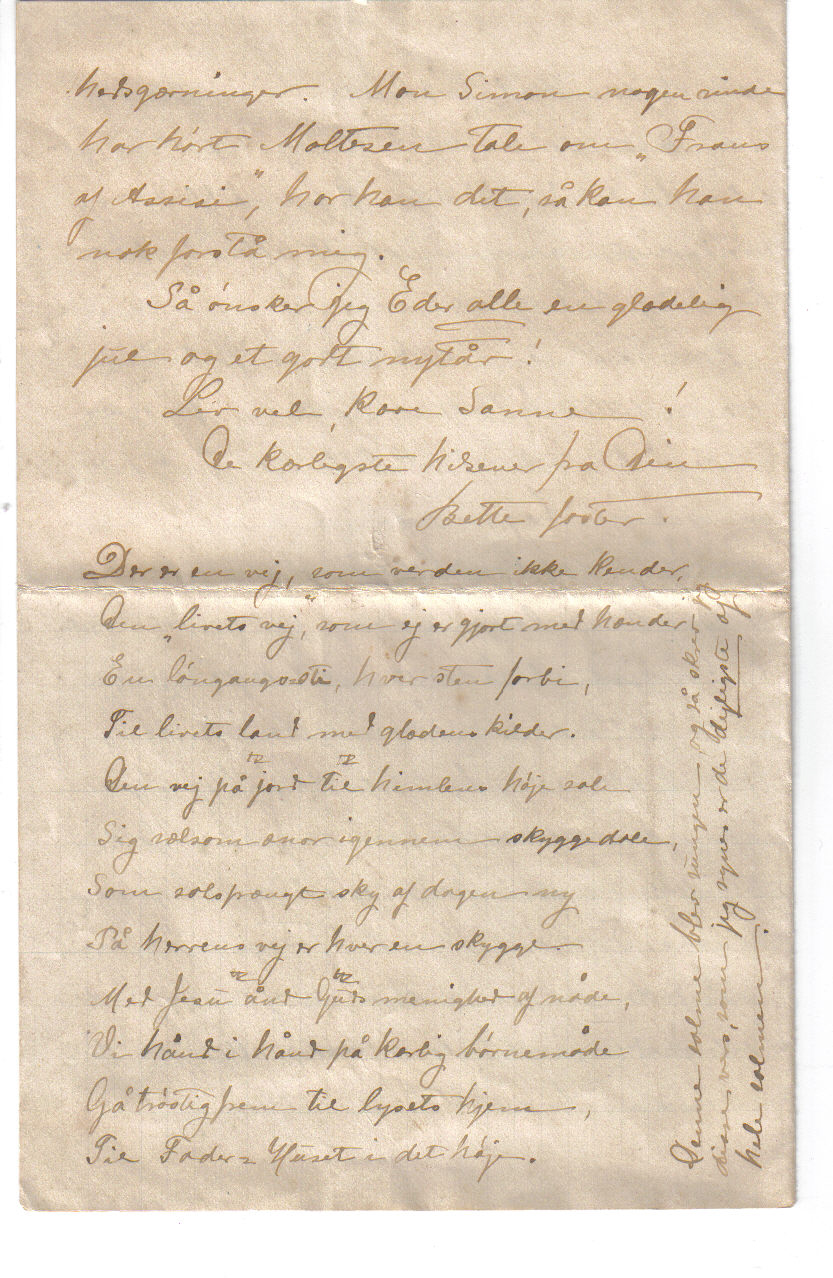 hedsgærninger. Mon Simon nogensinde
har hört Moltesen tale om „Frans
af Assisi”, har han det, så kan han
nok forstå mig.
Så önsker jeg Eder alle en glædelig
jul og et godt nytår!
Lev vel, kære Sanne!
De kærligste hilsener fra Din
Bette faster.
Der er en vej, som verden ikke kender,
Den „livets vej”, som ej er gjort med hænder
En löngangssti, hver sten forbi,
Til livets land med glædens kilder.
Den vej på jord til himlens höje sale
Sig sælsom snor igennem skyggedale,
Som solsprængt sky af dagen ny
På herrens vej er hver en skygge.
Med Jesu ånd Guds menighed af nåde,
Vi hånd i hånd på kærlig börnemåde
Gå tröstig frem til lysets hjem,
Til Fader=Huset i det höje.
Denne salme blev sungen, og så skrev jeg
disse vers, som jeg synes er de dejligste af
hele salmen.